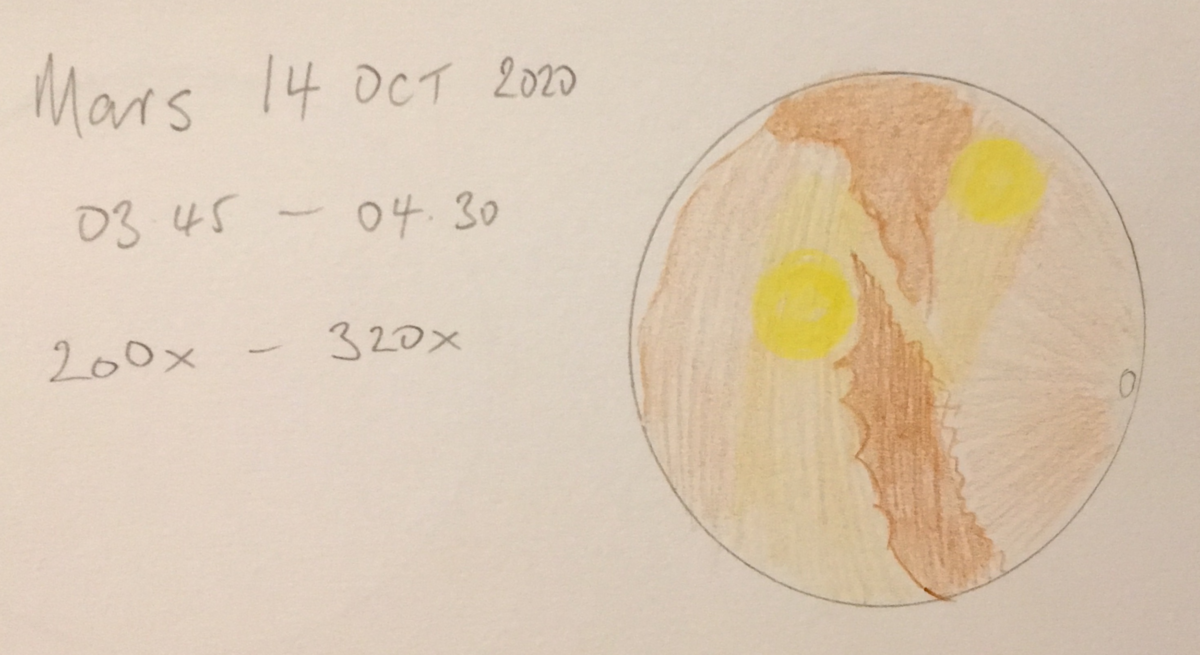 Mars 14 OCT 2020
03.45 - 04.30
200x - 320x